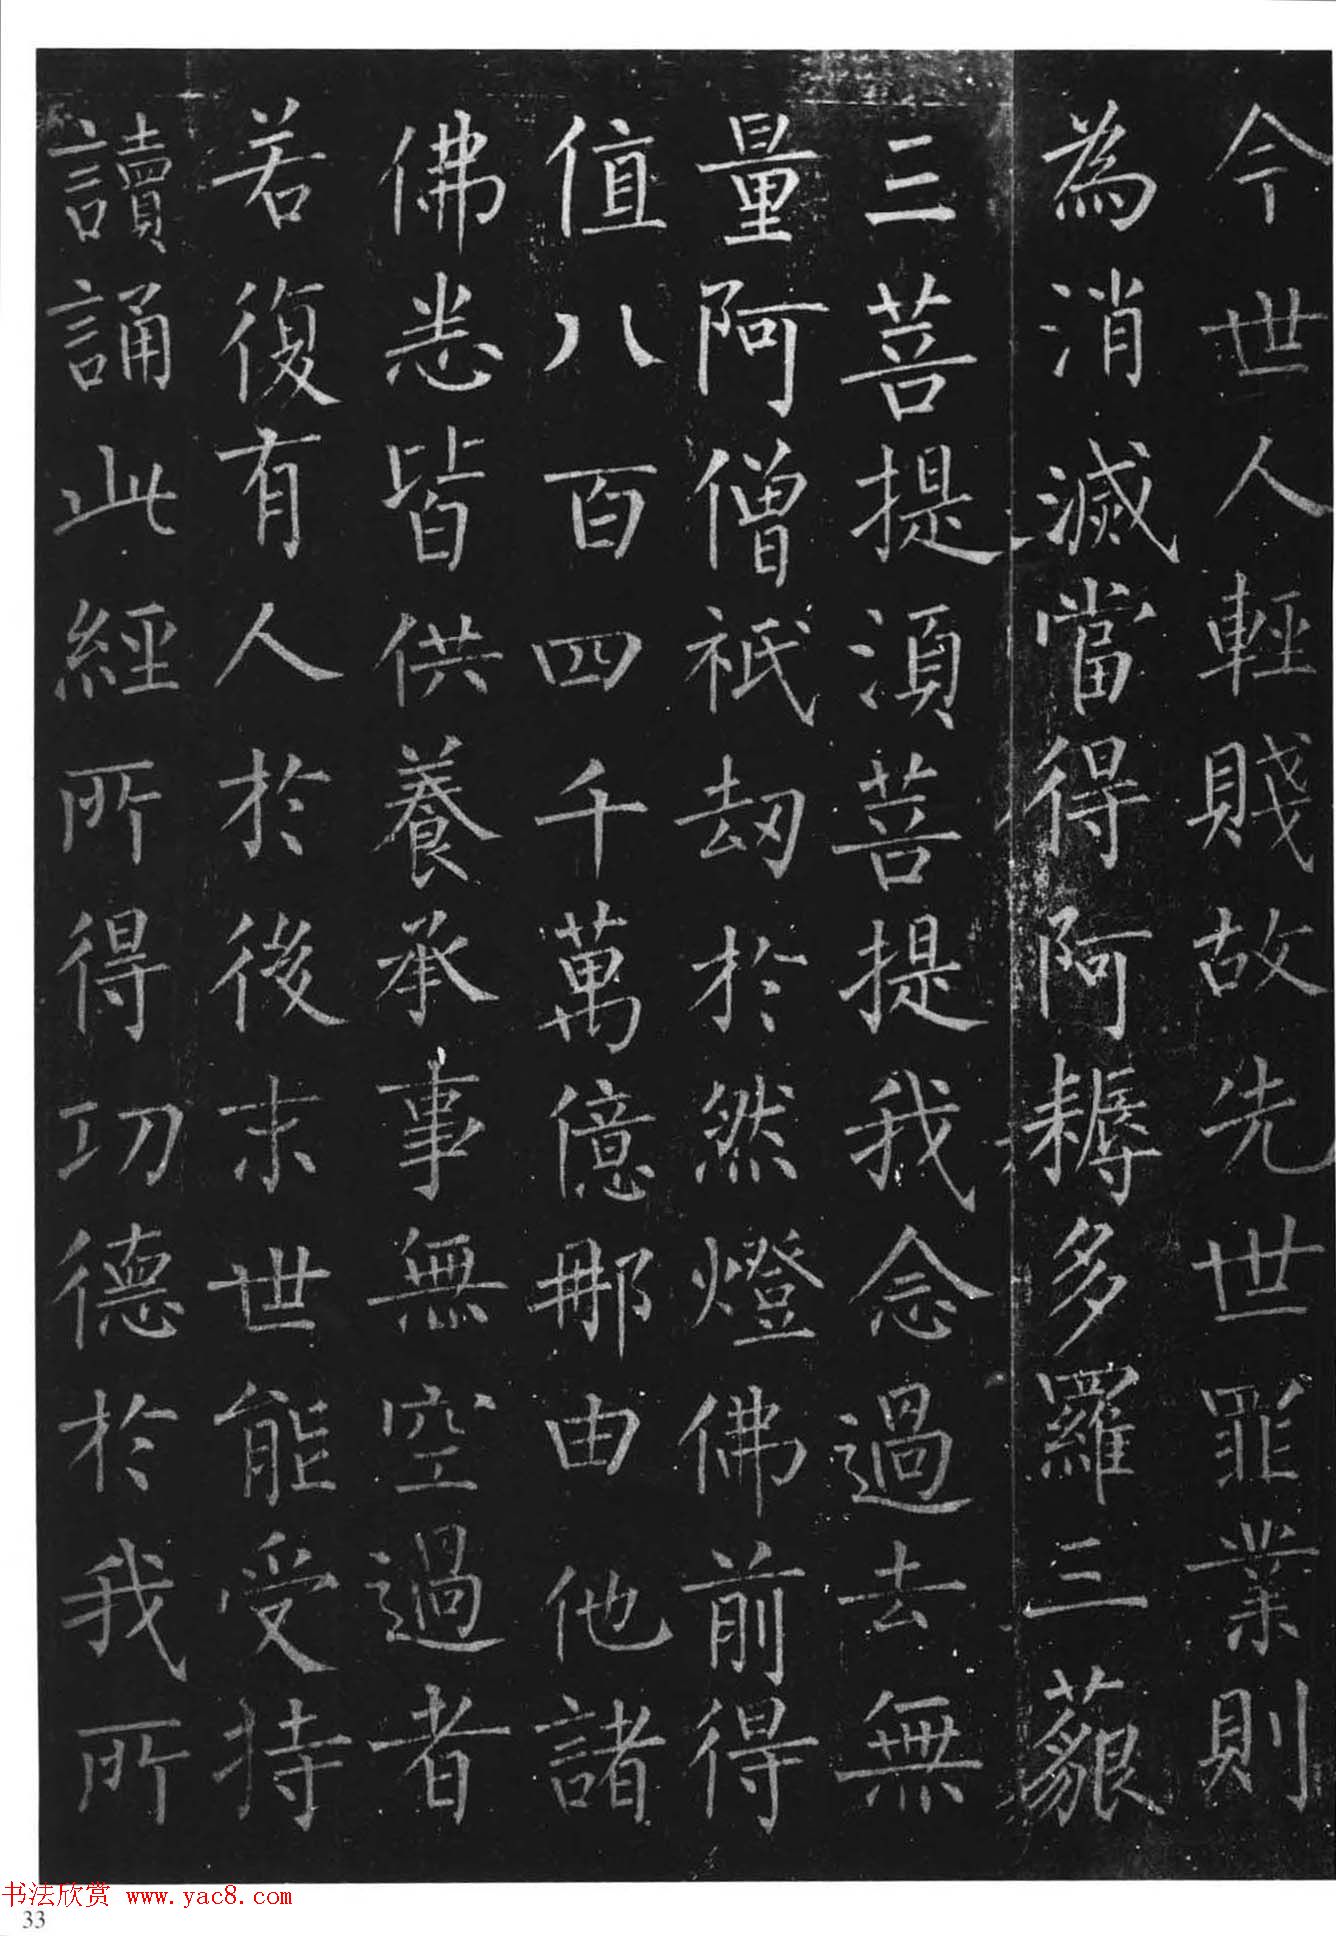 今世人輕賤故先世罪業則
為消滅當得阿耨多羅三藐
三菩提須菩提我念過去無
量阿僧祇劫於然燈佛前得
值八百四千萬億那由他諸
佛悉皆供養承事無空過者
若復有人於後末世能受持
讀誦此經所得功德於我所
书法欣赏 www.yac8.com
33